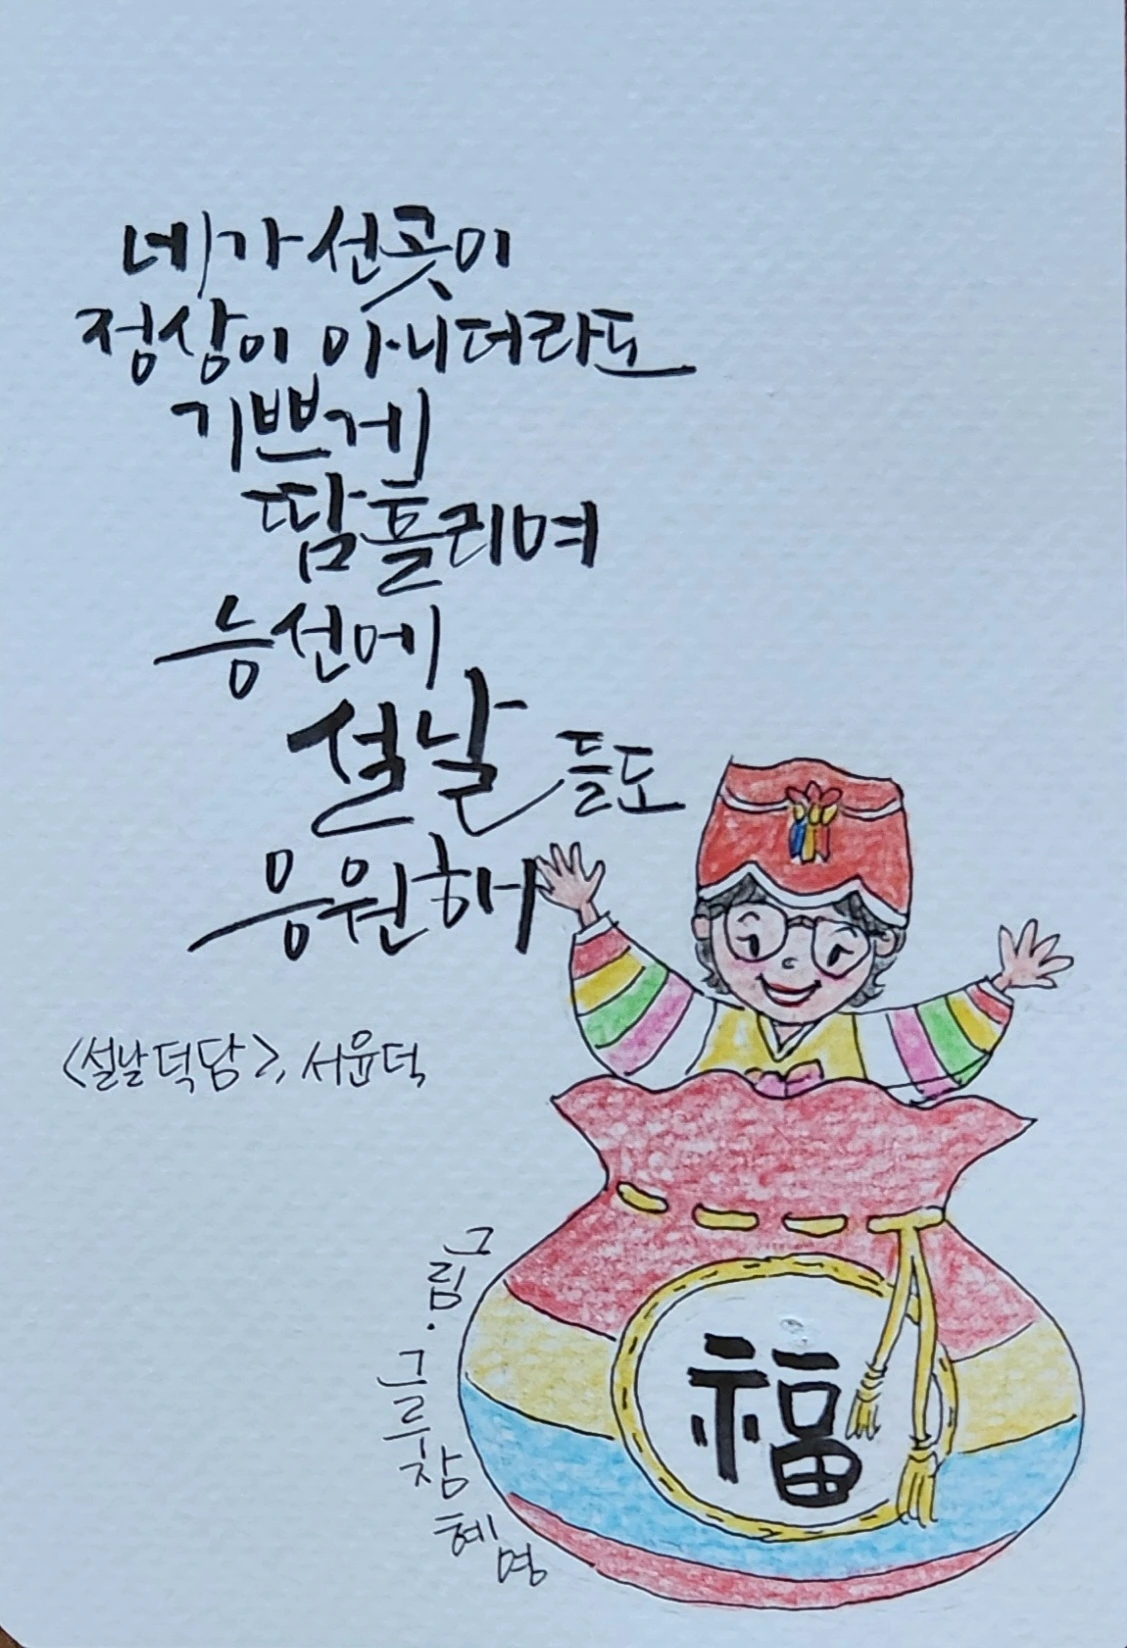 네가 선곳이
정상이 아니더라도
기쁘게
땀흘리며
능선에
설날들도
응원해
<설날덕담>, 서윤덕
그림·그루잠
혜명
福